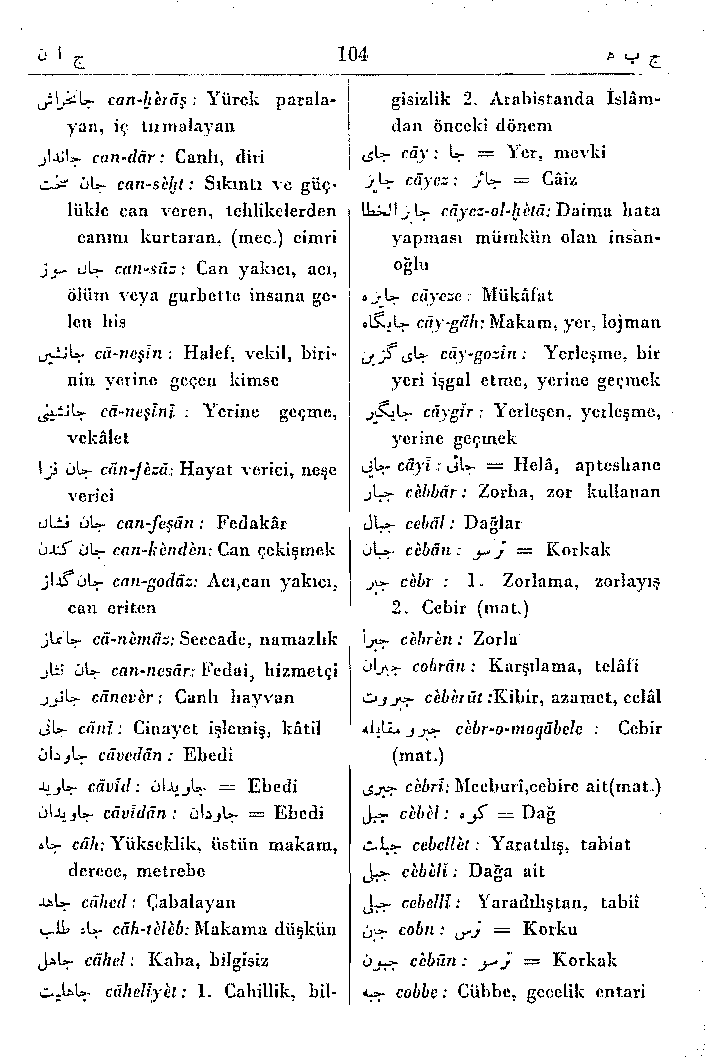 ج ا ن 104 ج ب ه
جانخراش can-ḫèrāş : Yürek parala-
yan, iç tırmalayan
جاندار can-dār : Canlı, diri
جان سخت can-sèḫt : Sıkıntı ve güç-
lükle can veren, tehlikelerden
canını kurtaran, (mec.) cimri
جان سوز can-sūz : Can yakıcı, acı,
ölüm veya gurbette insana ge-
len his
جانشین cā-neşīn : Halef, vekil, biri-
nin yerine geçen kimse
جانشینی cā-neşīnī : Yerine geçme,
vekâlet
جان فزا cān-fèzā : Hayat verici, neşe
verici
جان فشان can-feşān : Fedakâr
جان کندن can-kènden: Can çekişmek
جان گداز can-godāz: Acı,can yakıcı,
can eriten
جانماز cā-nèmāz: Seccade, namazlık
جان نثار can-nesār: Fedai, hizmetçi
جانور cānevèr : Canlı hayvan
جانی cānī : Cinayet işlemiş, kâtil
جاودان cāvedān : Ebedi
جاوید cāvīd : جاویدان = Ebedi
جاویدان cāvīdān : جاودان = Ebedi
جاه cāh: Yükseklik, üstün makam,
derece, metrebe
جاهد cāhed : Çabalayan
جاه طلب cāh-tèlèb: Makama düşkün
جاهل cāhel : Kaba, bilgisiz
جاهلیت cāhelīyèt : 1. Cahillik, bil-
gisizlik 2. Arabistanda İslâm-
dan önceki dönem
جای cāy : جا = Yer, mevki
جایز cāyez : جائز = Câiz
جایزالخطا cāyez-ol-ḫètā: Daima hata
yapması mümkün olan insan-
oğlu
جایزه cāyeze : Mükâfat
جایگاه cāy-gāh: Makam, yer, lojman
جای گزین cāy-gozīn : Yerleşme, bir
yeri işgal etme, yerine geçmek
جایگیر cāygīr : Yerleşen, yerleşme,
yerine geçmek
جایی cāyī : جائی = Helâ, apteshane
جبار cèbbār : Zorba, zor kullanan
جبال cebāl : Dağlar
جبان cèbān : ترسو = Korkak
جبر cèbr : 1. Zorlama, zorlayış
2. Cebir (mat.)
جبراً cèbrèn : Zorla
جبران cobrān : Karşılama, telâfi
جبروت cèbèrūt :Kibir, azamet, celâl
جبر و مقابله cèbr-o-moqābele : Cebir
(mat.)
جبری cèbrī : Mecburî,cebire ait(mat.)
جبل cèbèl : کوه = Dağ
جبلت cebellèt : Yaratılış, tabiat
جبلی cèbèlī : Dağa ait
جبلی cebellī : Yaradılıştan, tabiî
جبن cobn : ترس = Korku
جبون cèbūn : ترسو = Korkak
جبه cobbe : Cübbe, gecelik entari